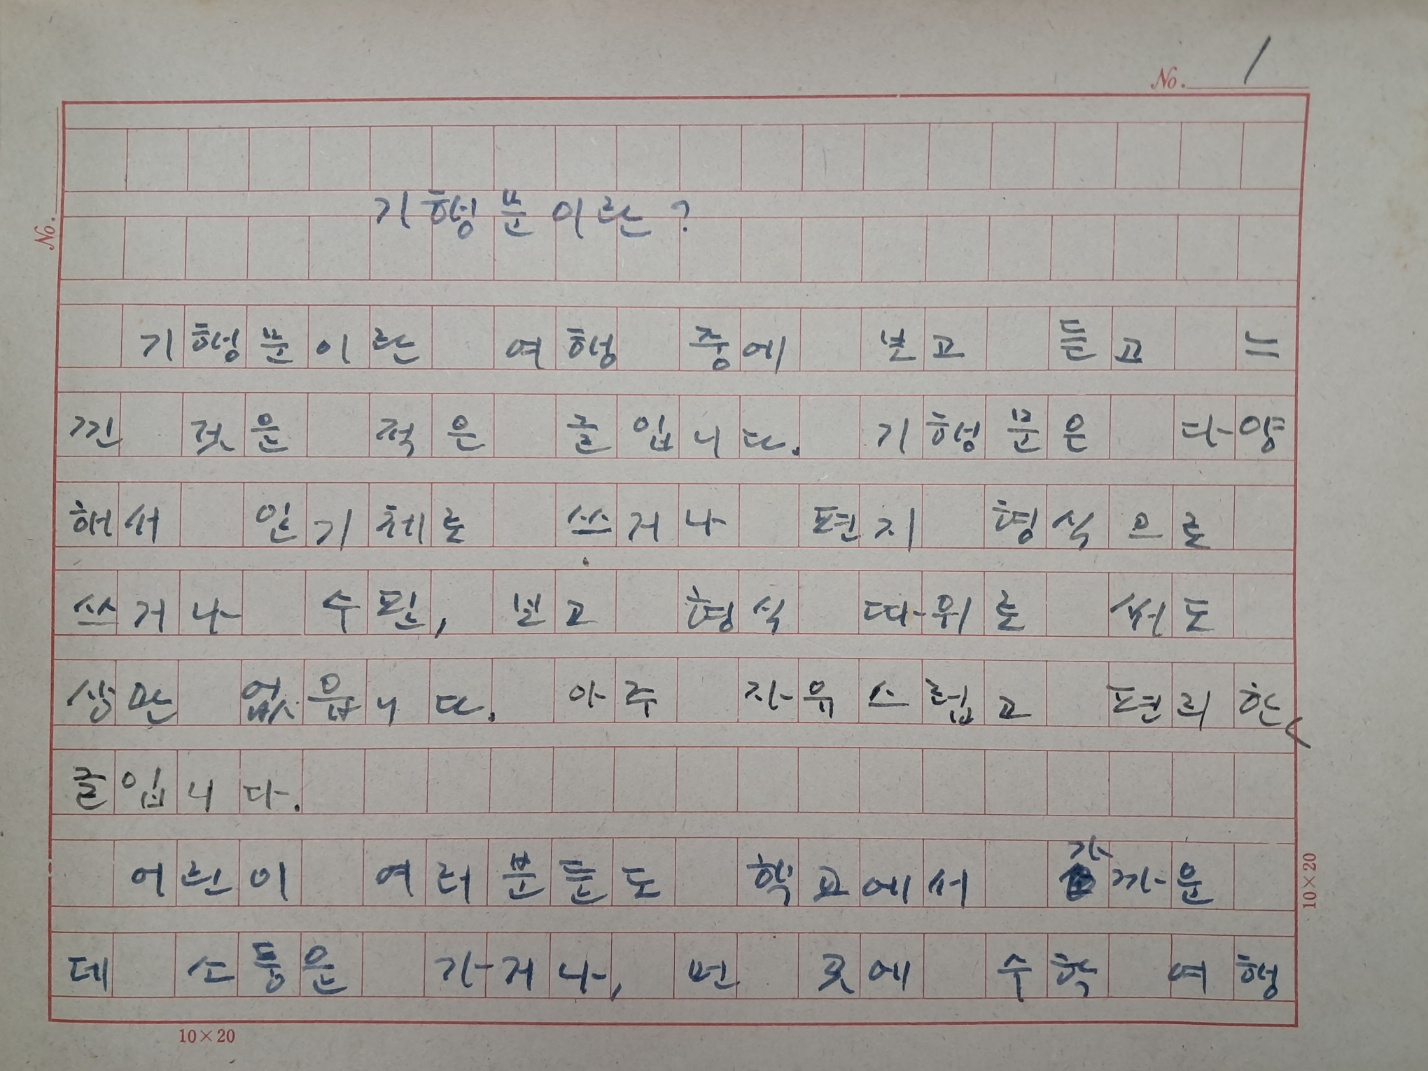 No. 1
No.
기행문이란?
기행문이란 여행 중에 보고 듣고 느
낀 것을 적은 글입니다. 기행문은 다양
해서 일기체로 쓰거나 편지 형식으로
쓰거나 수필, 보고 형식 따위로 써도
상관 없읍니다. 아주 자유스럽고 편리한
글입니다.
어린이 여러분들도 학교에서 가까운
데 소풍을 가거나, 먼 곳에 수학 여행
10×20
10×20